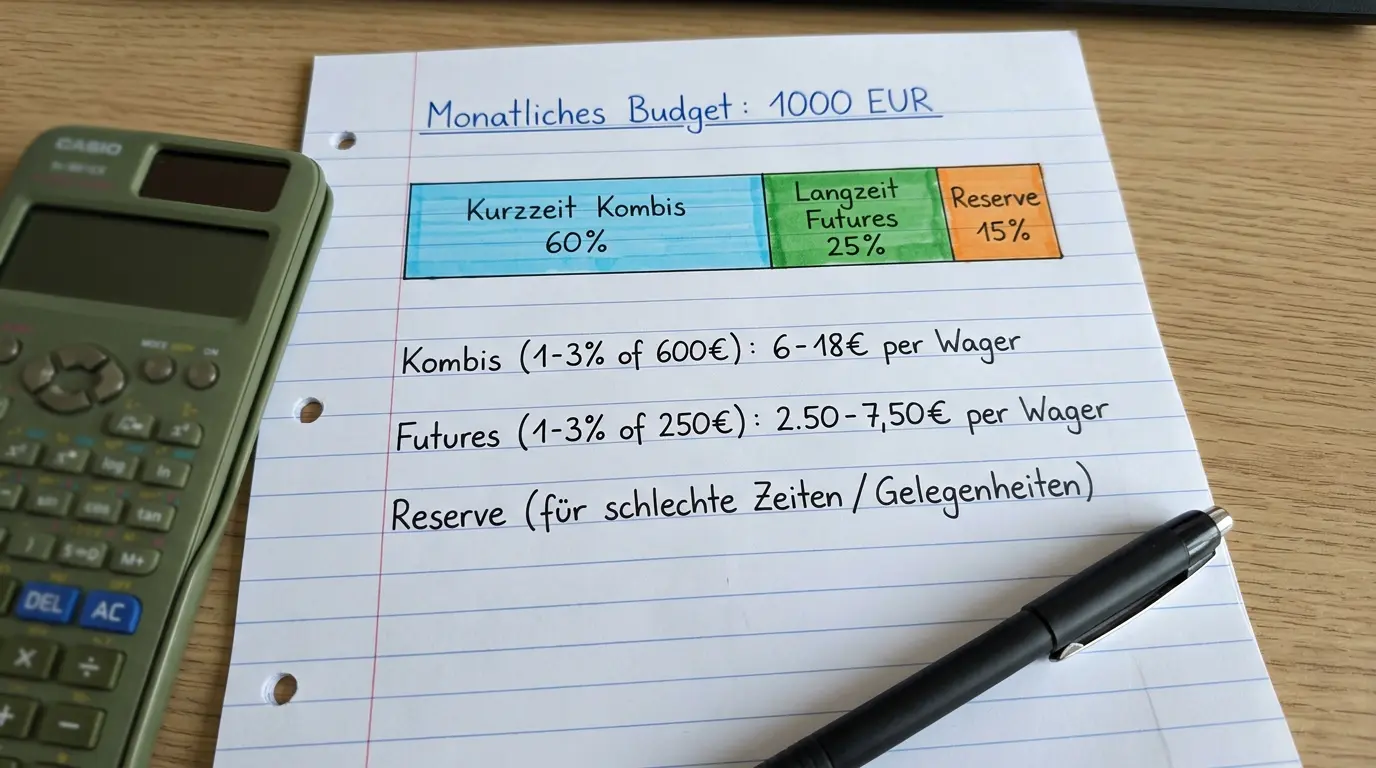 Monatliches Budget: 1000 EUR
Kurzzeit Kombis
60%
Langzeit
Futures
25%
Reserve
15%
Kombis (1-3% of 600€): 6-18€ per Wager
Futures (1-3% of 250€): 2.50-7,50€ per Wager
Reserve (für schlechte Zeiten / Gelegenheiten)
CASIO
MODE
ON
log
ln
sin
cos
tan
)
S⇔D
M+
DEL
AC
×
÷
+
−